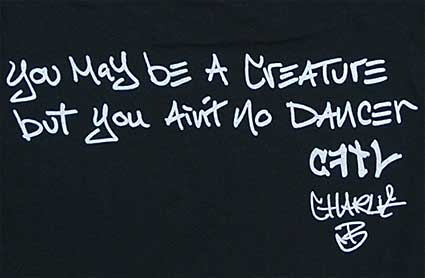 You May bE A CREATURE
but you Ain't no DANCEr
CHARLIE